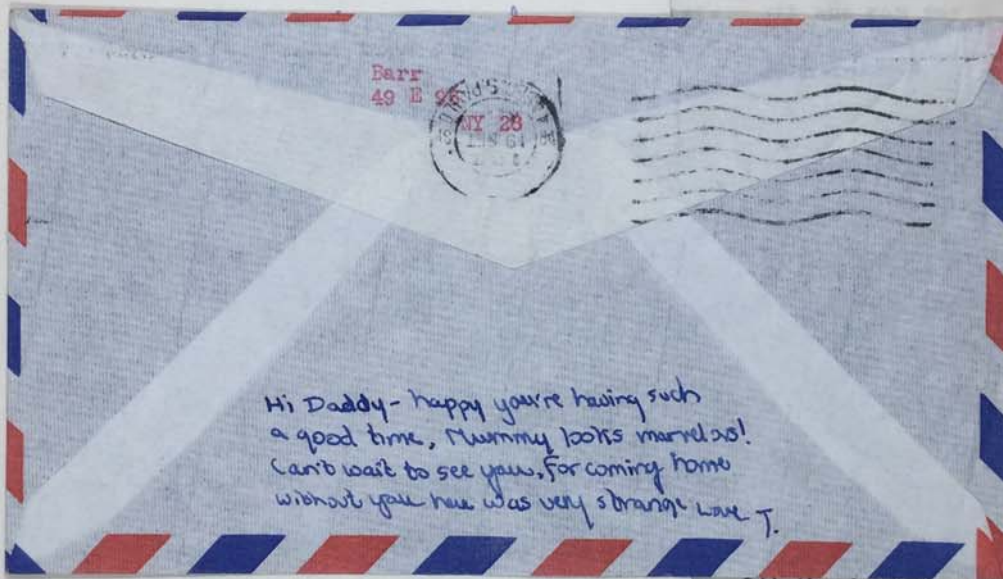 Barr
49 E 96
NY 28
Hi Daddy - happy you're having such
a good time, Mummy looks marvelous!
Can't wait to see you, for coming home
without you here was very strange love T.